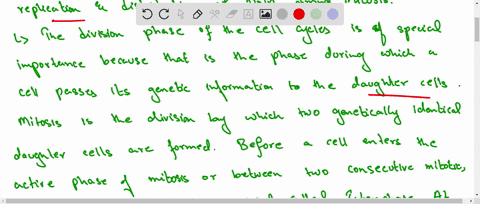 replication &
↳ The division phase of the cell cycles is of special
importance because that is the phase during which a
cell passes its genetic information to the daughter cells.
Mitosis is the division by which two genetically identical
daughter cells are formed. Before a cell enters the
active phase of mitosis or between two consecutive mitotic,